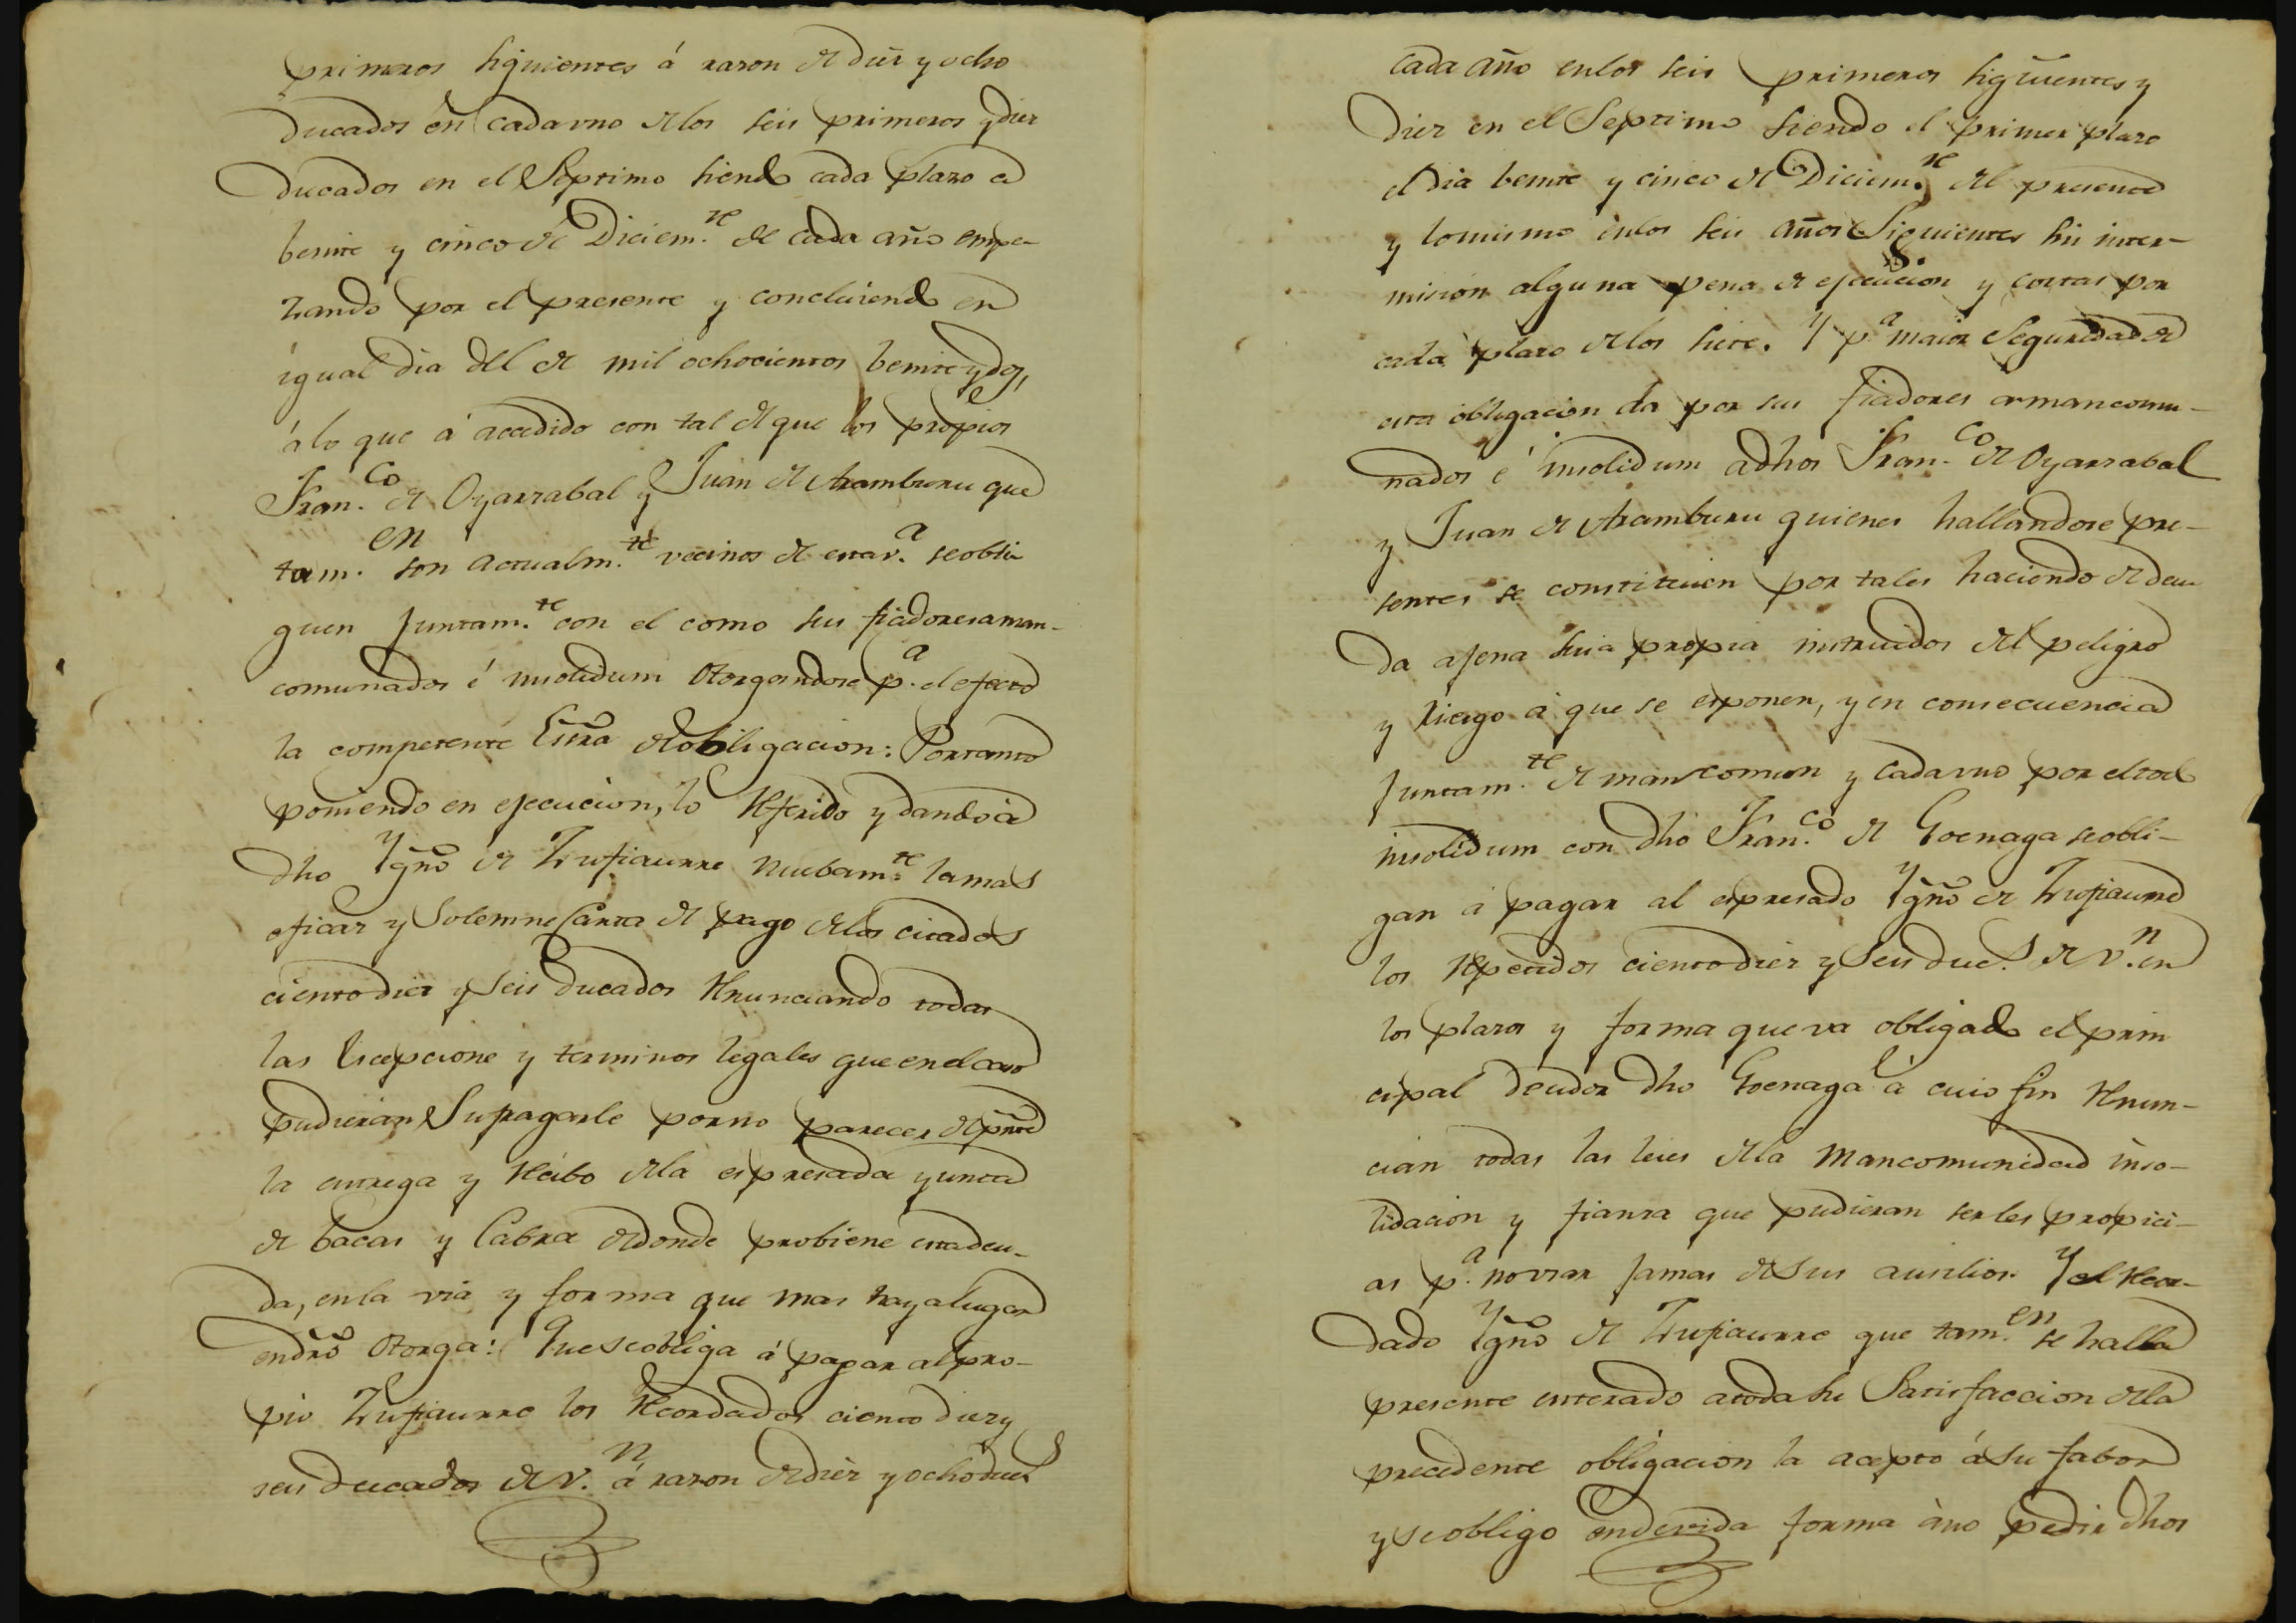 primeros siguientes á razon de diez y ocho
ducados en cadauno de los seis primeros y diez
ducados en el Septimo siendo cada plazo a
beinte y cinco de Diciem.re de cada año empe-
zando por el presente y concluiendo en
igual dia del de mil ochocientos beinte y dos,
á lo que á accedido con tal de que los propios
Fran.co de Oyarzabal y Juan de Aramburu que
tam.en son actualm.te vecinos de esta v.a se obli
guen juntam.te con el como sus fiadores aman-
comunados é insolidum otorgandose p.a el efecto
la competente Essra de obligacion: Portanto
poniendo en ejecucion, lo referido y dando á
dho Ygno de Zufiaurre nuebam.te la mas
eficaz y Solemne Carta de pago de los citados
ciento diez y seis ducados renunciando todas
las Escepcione y terminos legales que en el caso
pudieran Sufragarle por no parecer de pnte
la entrega y recibo de la espresada yunta
de bacas y Cabra de donde probiene esta deu-
da, en la via y forma que mas haya lugar
en dro otorga: Que se obliga á pagar al pro-
pio Zufiaurre los recordados ciento diez y
seis ducados de v.n á razon de diez y ocho duc.s
cada año en los seis primeros siguientes y
diez en el Septimo siendo el primer plazo
el dia beinte y cinco de Diciem.re del presente
y lo mismo en los seis años Siguientes sin inter-
mision alguna pena de ejecucion y costas por
cada plazo de los siete. Y p.a maior Seguridad de
esta obligacion da por sus fiadores amancomu-
nados é insolidum a dhos Fran.co de Oyarzabal
y Juan de Aramburu quienes hallandose pre-
sentes se constituien por tales haciendo de deu
da ajena suia propia instruidos del peligro
y riesgo á que se esponen, y en consecuencia
juntam.te de mancomun y cadauno por el todo
insolidum con dho Fran.co de Goenaga se obli-
gan á pagar al espresado Ygno de Zufiaurre
los repetidos ciento diez y Seis duc.s de v.n en
los plazos y forma que va obligado el prin
cipal deudor dho Goenaga á cuio fin renun-
cian todas las leies de la mancomunidad inso-
lidacion y fianza que pudieran serles propici-
as p.a no usar jamas de sus ausilios. Y el recor-
dado Ygno de Zufiaurre que tam.en se halla
presente enterado a toda su Satisfaccion de la
precedente obligacion la acepto á su fabor
y se obligo en devida forma á no pedir dhos